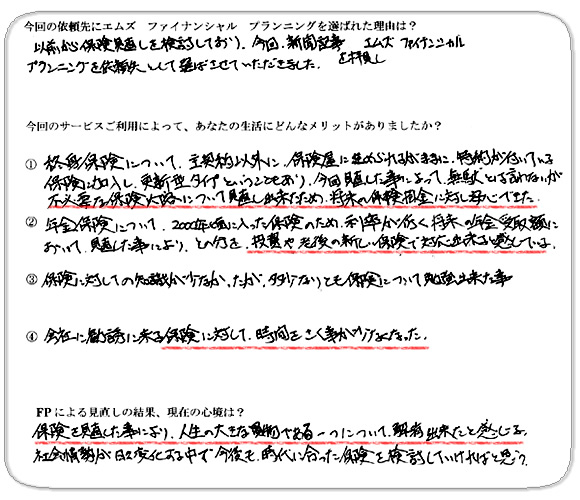 今回の依頼先にエムズ ファイナンシャル プランニングを選ばれた理由は?
以前から保険見直しを検討しており、今回、新聞記事を拝見し エムズ ファイナンシャル
プランニングを依頼先として選ばさせていただきました。
今回のサービスご利用によって、あなたの生活にどんなメリットがありましたか?
① 終身保険について、主契約以外に、保険屋に進められるがままに、特約が付いている
保険に加入し、更新型タイプということもあり、今回見直した事によって、無駄とは言わないが
不必要な保険 について見直し出来たため、将来の保険料金に対し安心できた。
② 年金保険について、2000年頃に入った保険のため、利率が低く将来の年金受取額に
おいて、見直した事により、 の分を、投資や老後の新しい保険で対応出来ると感じている。
③ 保険に対しての知識が少なかったが、多少なりとも保険について勉強出来た事
④ 会社に勧誘に来る保険に対して、時間をさく事が少なくなった。
FPによる見直しの結果、現在の心境は?
保険を見直した事により、人生の大きな買物である一つについて、 出来たと感じる。
社会情勢が日々変化する中で今後も、時代に合った保険を検討していければと思う。